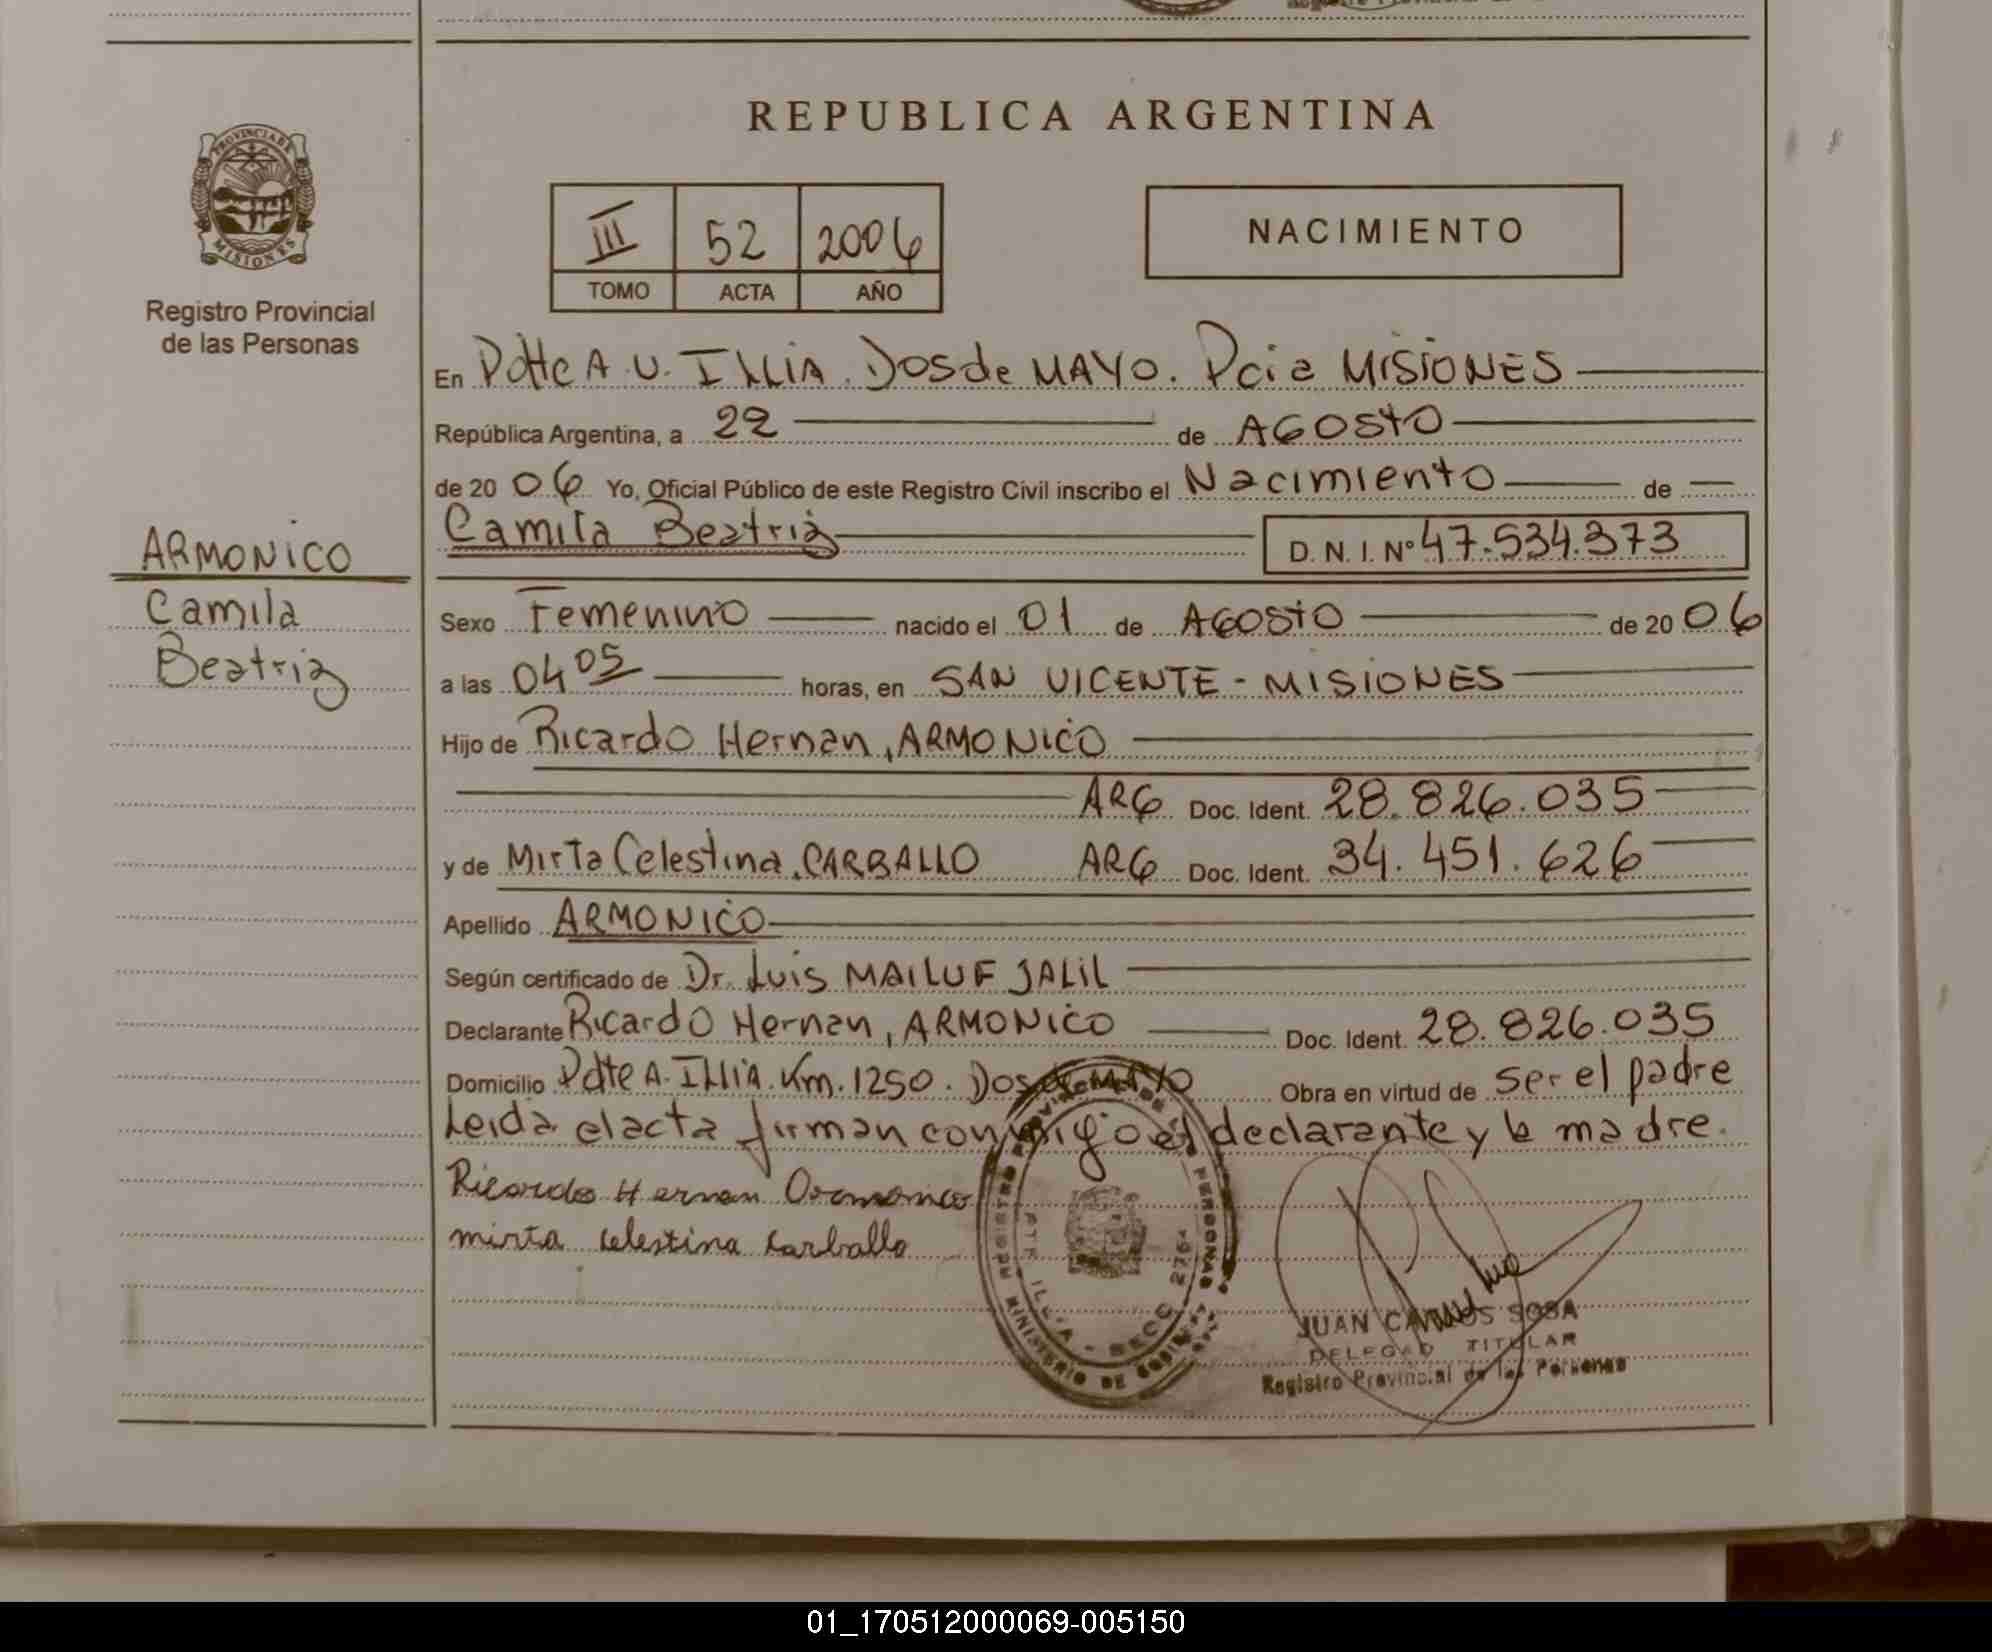 REPUBLICA ARGENTINA
PROVINCIA DE
MISIONES
Registro Provincial
de las Personas
III 52 2006
TOMO ACTA AÑO
NACIMIENTO
En Pdte A. U. ILLIA. Dos de MAYO. Pcia MISIONES
República Argentina, a 22 de AGOSTO
de 20 06 Yo, Oficial Público de este Registro Civil inscribo el Nacimiento de
Camila Beatriz D. N. I. Nº 47.534.373
ARMONICO
Camila
Beatriz
Sexo Femenino nacido el 01 de AGOSTO de 20 06
a las 04 05 horas, en SAN VICENTE - MISIONES
Hijo de Ricardo Hernan, ARMONICO
ARG Doc. Ident. 28.826.035
y de Mirta Celestina, CARBALLO ARG Doc. Ident. 34.451.626
Apellido ARMONICO
Según certificado de Dr. Luis MAILUF JALIL
Declarante Ricardo Hernan, ARMONICO Doc. Ident. 28.826.035
Domicilio Pdte A. ILLIA. Km. 1250. Dos de MAYO Obra en virtud de ser el padre
Leida el acta firman conmigo el declarante y la madre.
Ricardo Hernan Armonico
mirta celestina Carballo
REGISTRO PROVINCIAL DE LAS PERSONAS
MINISTERIO DE
PTE ILLIA - SECC 2764
JUAN CARLOS SOSA
DELEGADO TITULAR
Registro Provincial de las Personas
01_170512000069-005150